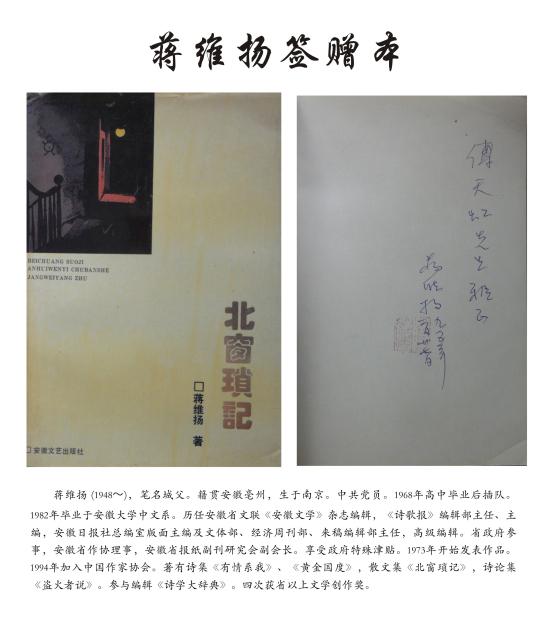 蒋维扬签赠本
BEICHUANG SUOJI
ANHUIWENYI CHUBANSHE
JIANGWEIYANG ZHU
北窗瑣記
□蒋维扬 著
□安徽文艺出版社
傅天虹先生雅正
蒋维扬
蒋维扬 (1948～)，笔名城父。籍贯安徽亳州，生于南京。中共党员。1968年高中毕业后插队。
1982年毕业于安徽大学中文系。历任安徽省文联《安徽文学》杂志编辑，《诗歌报》编辑部主任、主
编，安徽日报社总编室版面主编及文体部、经济周刊部、来稿编辑部主任，高级编辑。省政府参
事，安徽省作协理事，安徽省报纸副刊研究会副会长。享受政府特殊津贴。1973年开始发表作品。
1994年加入中国作家协会。著有诗集《有情系我》、《黄金国度》，散文集《北窗琐记》，诗论集
《盗火者说》。参与编辑《诗学大辞典》。四次获省以上文学创作奖。